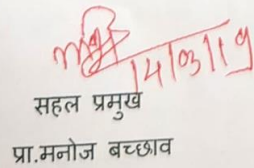 14/03/19
सहल प्रमुख
प्रा.मनोज बच्छाव